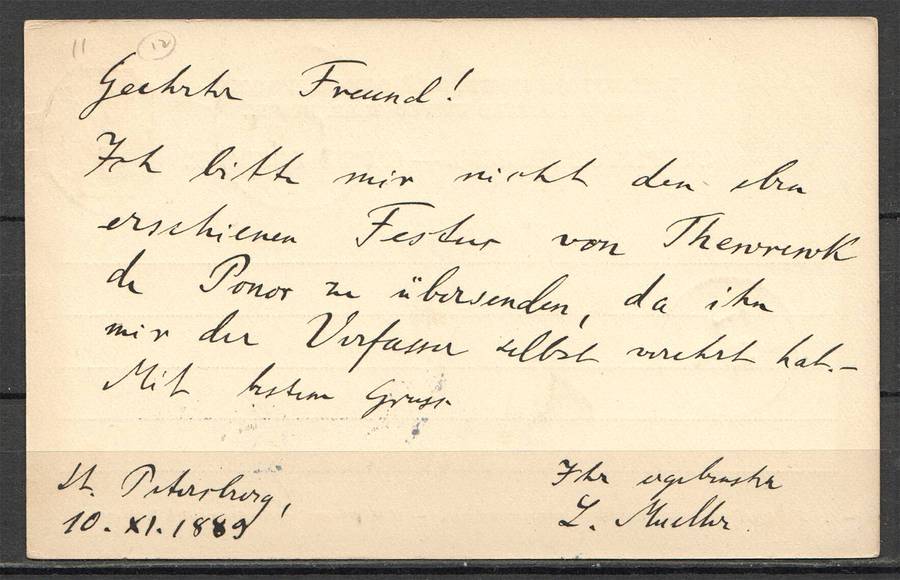 11 12
Geehrter Freund!
Ich bitte mir nicht den eben
erschienen Festus von Thewrewk
de Ponor zu übersenden, da ihn
mir der Verfasser selbst verehrt hat.–
Mit bestem Gruss
St. Petersburg,
10. XI. 1889
Ihr ergebenster
L. Mueller.